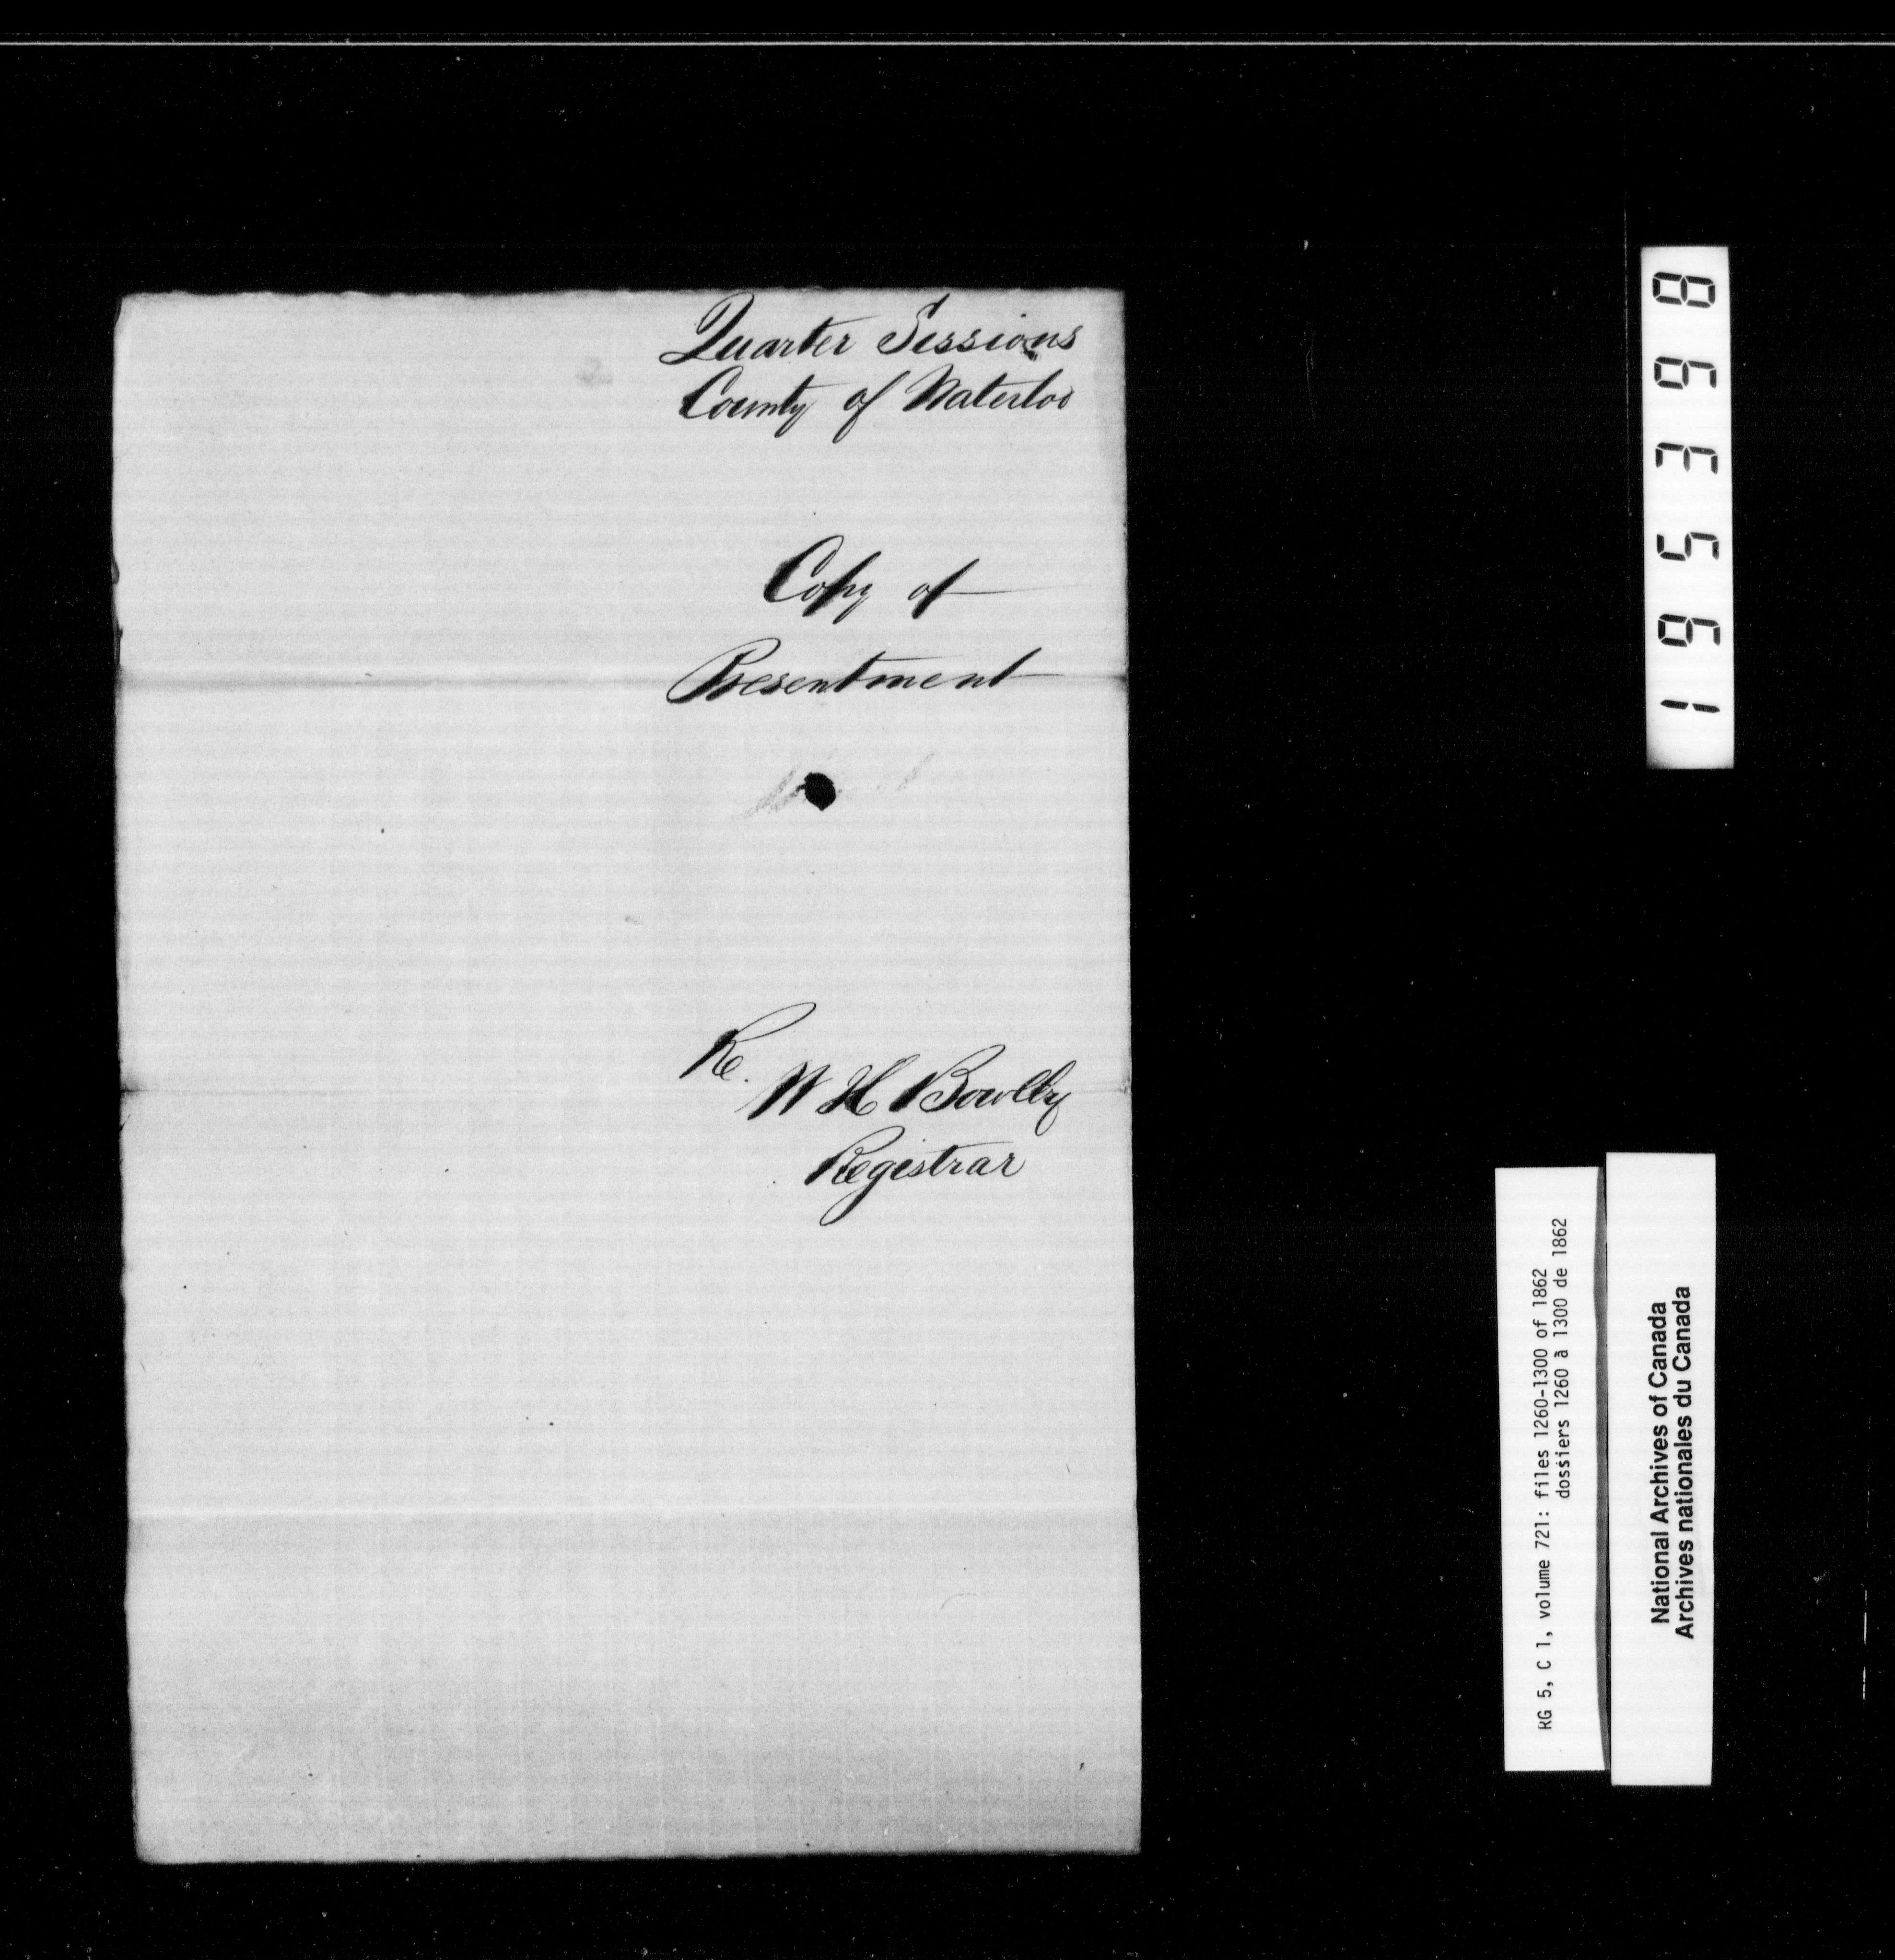 Quarter Sessions
County of Waterloo
Copy of
Presentment
Re.
W H Bowlby
Registrar
195398
RG 5, C 1, volume 721: files 1260-1300 of 1862
dossiers 1260 à 1300 de 1862
National Archives of Canada
Archives nationales du Canada